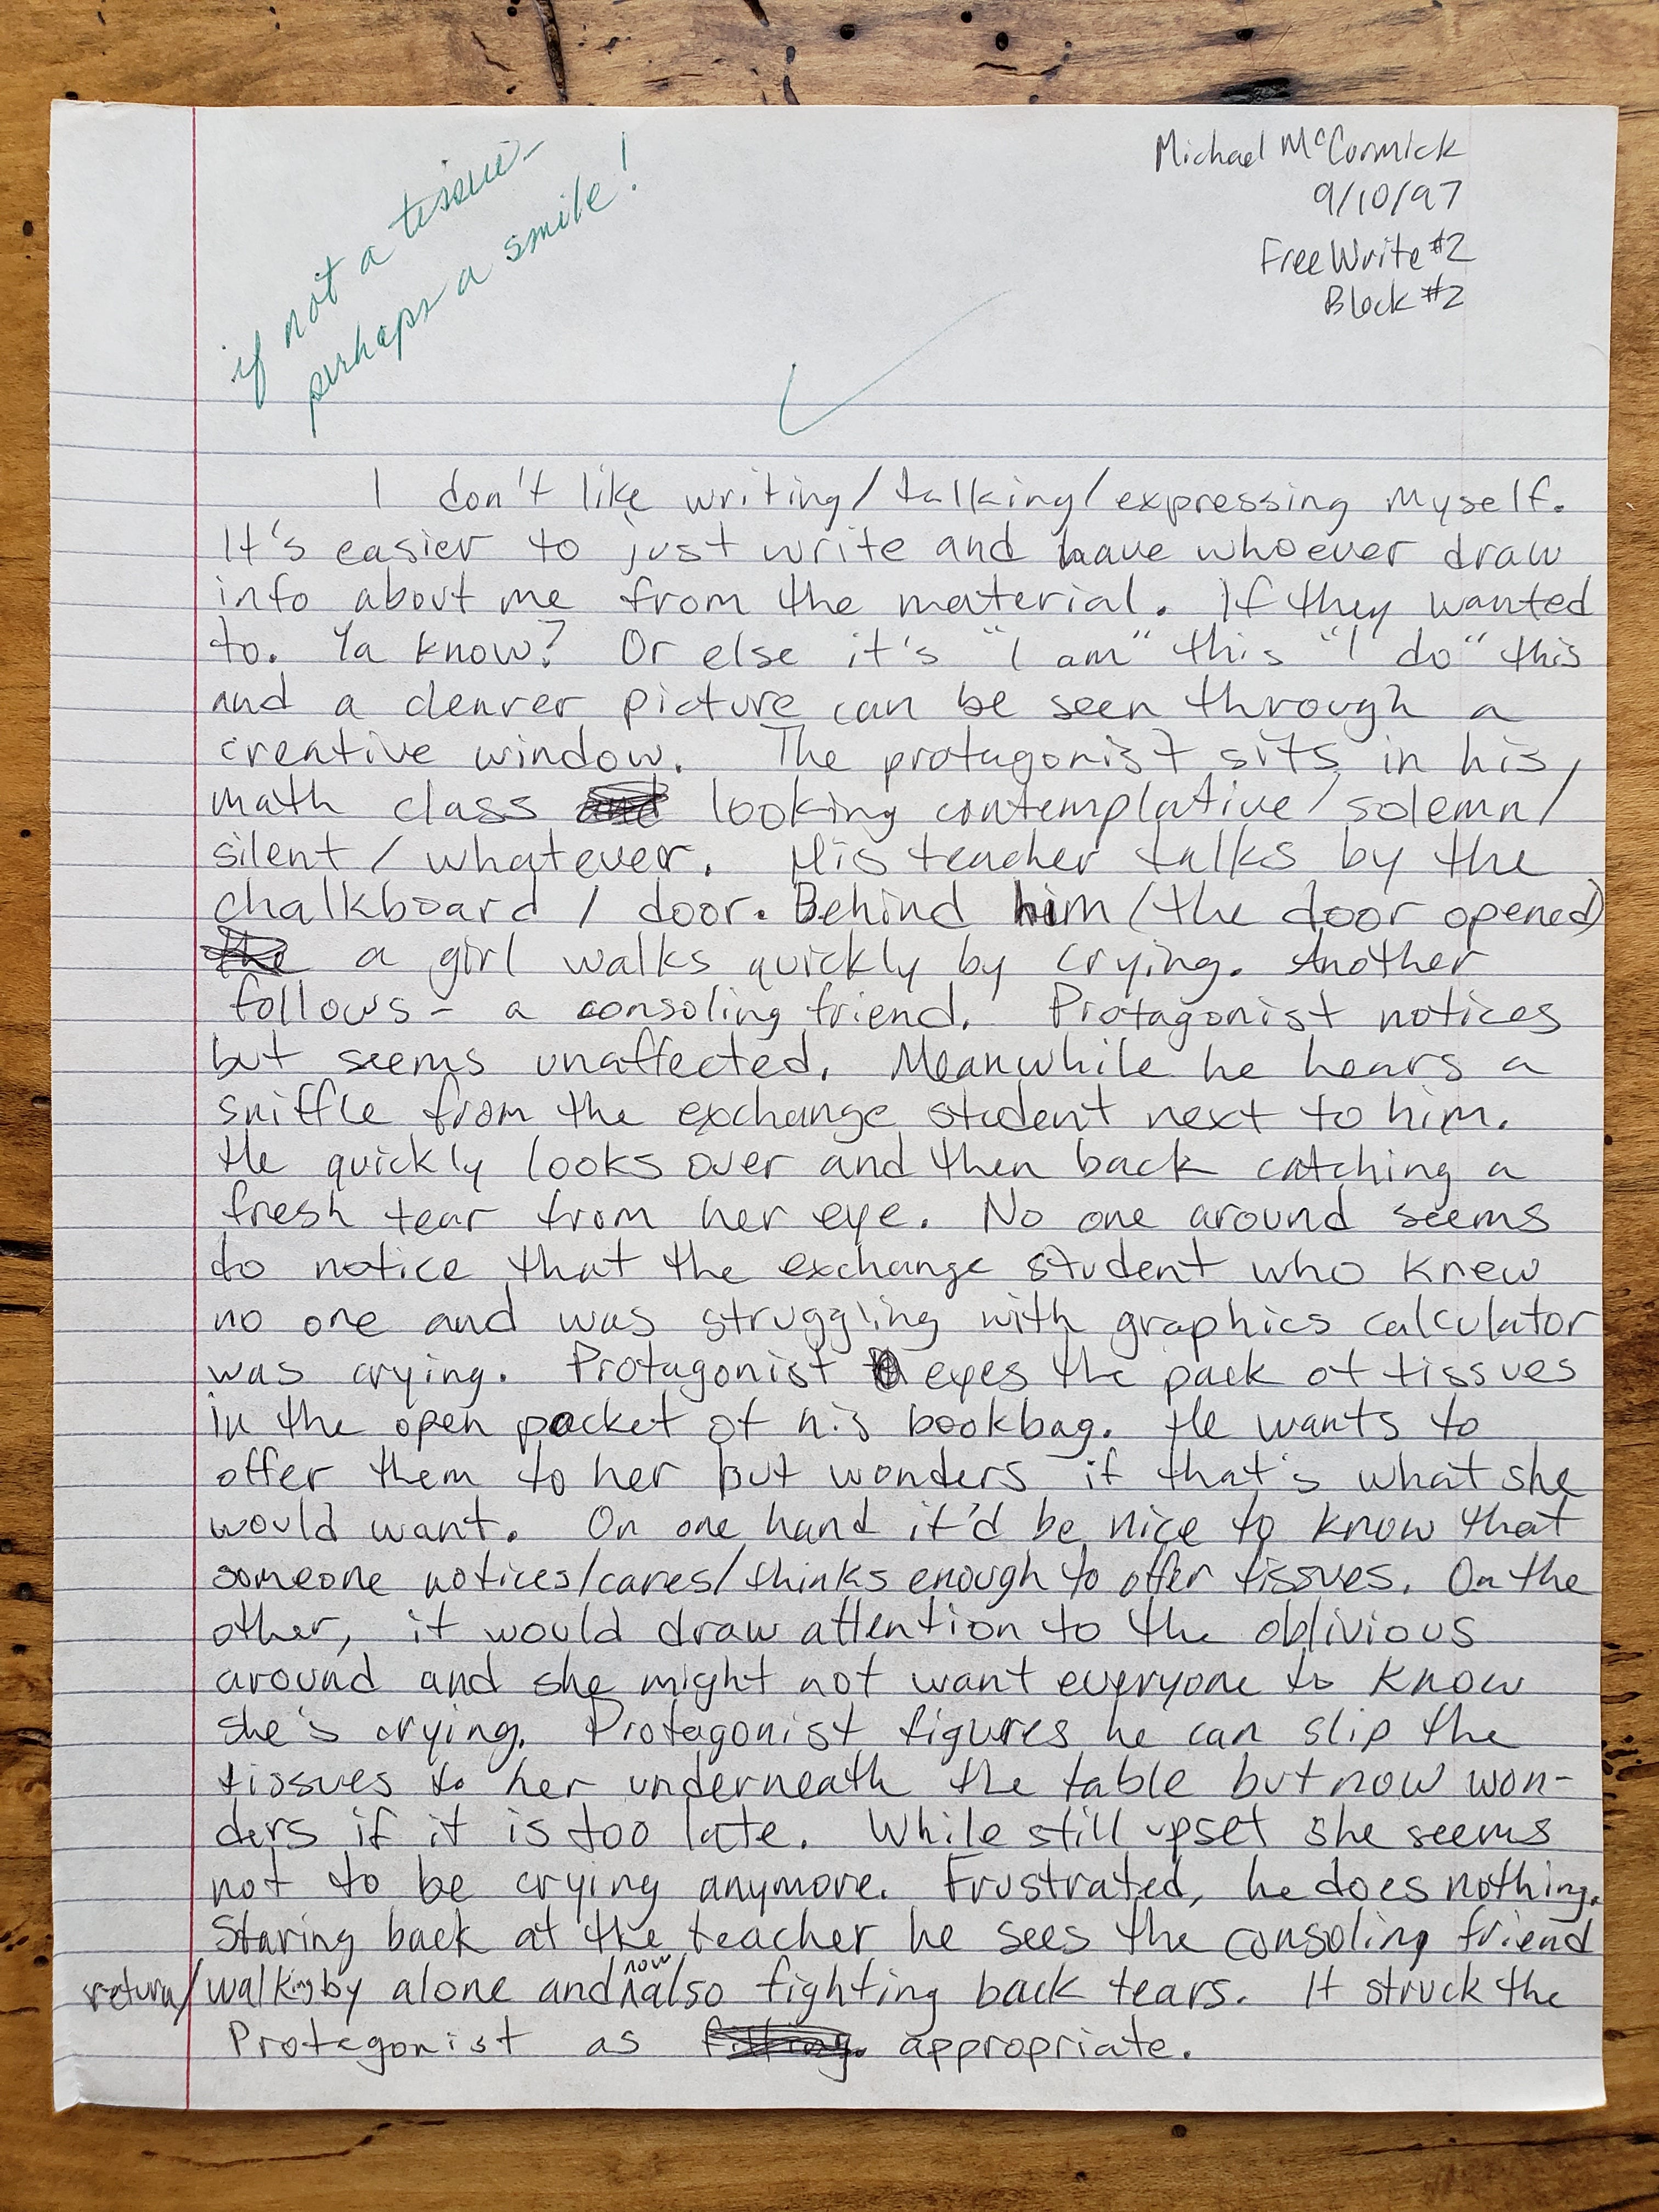 if not a tissue-
perhaps a smile!
Michael McCormick
9/10/97
Free Write #2
Block #2
I don't like writing/talking/expressing myself.
It's easier to just write and have whoever draw
info about me from the material. If they wanted
to. Ya know? Or else it's "I am" this "I do" this
and a clearer picture can be seen through a
creative window. The protagonist sits in his
math class and looking contemplative/solemn/
silent/whatever. His teacher talks by the
chalkboard/door. Behind him (the door opened)
the a girl walks quickly by crying. Another
follows- a consoling friend. Protagonist notices
but seems unaffected. Meanwhile he hears a
sniffle from the exchange student next to him.
He quickly looks over and then back catching a
fresh tear from her eye. No one around seems
to notice that the exchange student who knew
no one and was struggling with graphics calculator
was crying. Protagonist eyes the pack of tissues
in the open pocket of his bookbag. He wants to
offer them to her but wonders if that's what she
would want. On one hand it'd be nice to know that
someone notices/cares/thinks enough to offer tissues. On the
other, it would draw attention to the oblivious
around and she might not want everyone to know
she's crying. Protagonist figures he can slip the
tissues to her underneath the table but now won-
ders if it is too late. While still upset she seems
not to be crying anymore. Frustrated, he does nothing.
Staring back at the teacher he sees the consoling friend
return/walking by alone and now also fighting back tears. It struck the
Protagonist as fitting. appropriate.